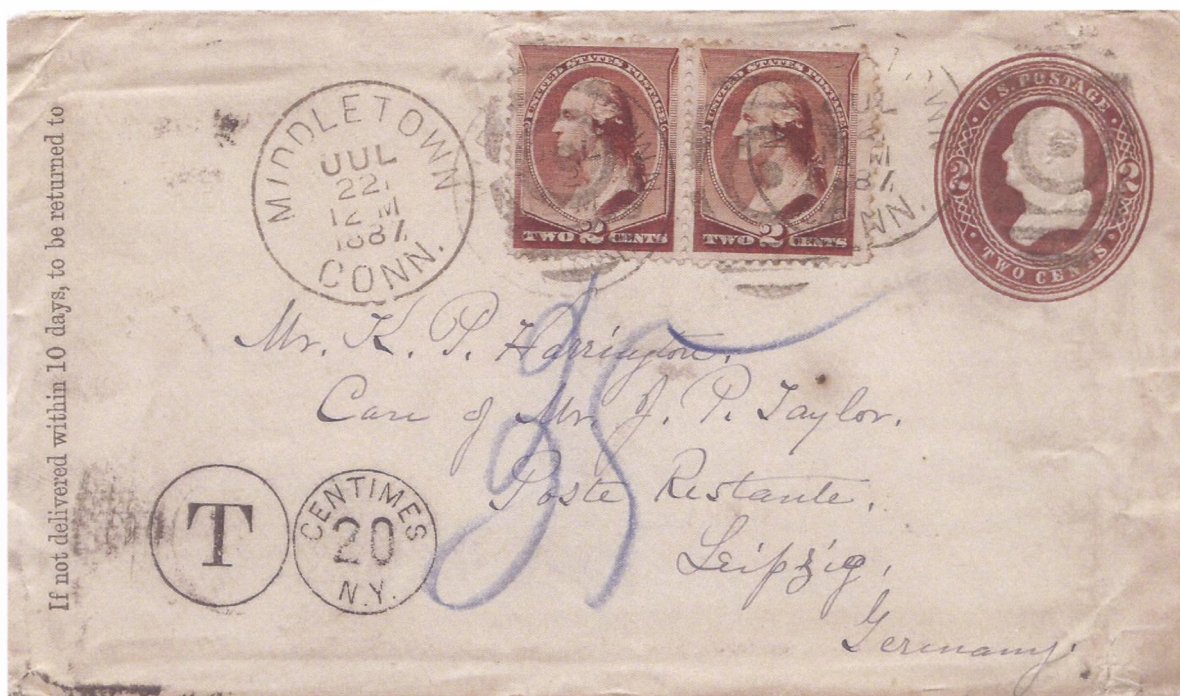 If not delivered within 10 days, to be returned to
MIDDLETOWN
JUL
22
12 M
1887
CONN.
UNITED STATES POSTAGE
TWO 2 CENTS
UNITED STATES POSTAGE
TWO 2 CENTS
U.S. POSTAGE
2 2
TWO CENTS
Mr. K. P. Harrington.
Care of Mr. J. P. Taylor.
Poste Restante.
Leipzig,
Germany.
35
T
CENTIMES
20
N.Y.